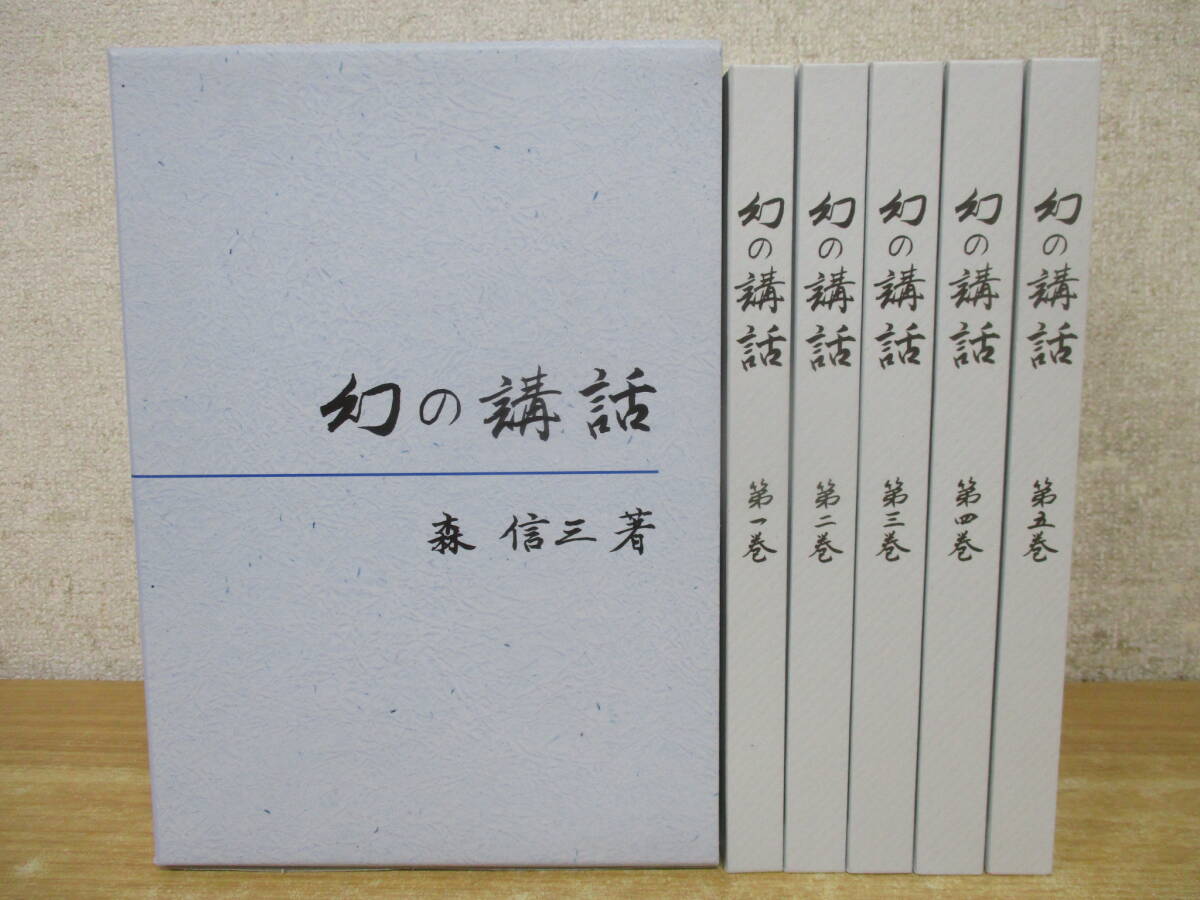 幻の講話
森 信三 著
幻の講話 第一巻
幻の講話 第二巻
幻の講話 第三巻
幻の講話 第四巻
幻の講話 第五巻